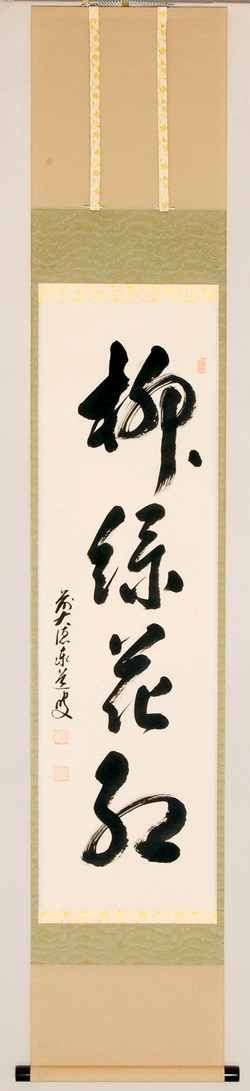 柳緑花紅
前大徳泉道叟